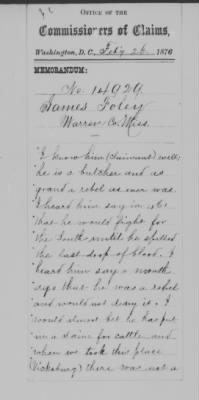 OFFICE OF THE
Commissioners of Claims,
Washington, D. C., Feby 26 1876
MEMORANDUM:
No. 14929.
James Foley
Warren Co. Miss.
"I know him (claimant) well;
he is a butcher and as
grand a rebel as ever was.
I heard him say in
that he would fight for
the South until he spilled
the last drop of blood. I
heard him say a month
ago that he was a rebel
and would not deny it. I
would almost bet he has put
in a claim for cattle and
when we took this place
(Vicksburg) there was not a